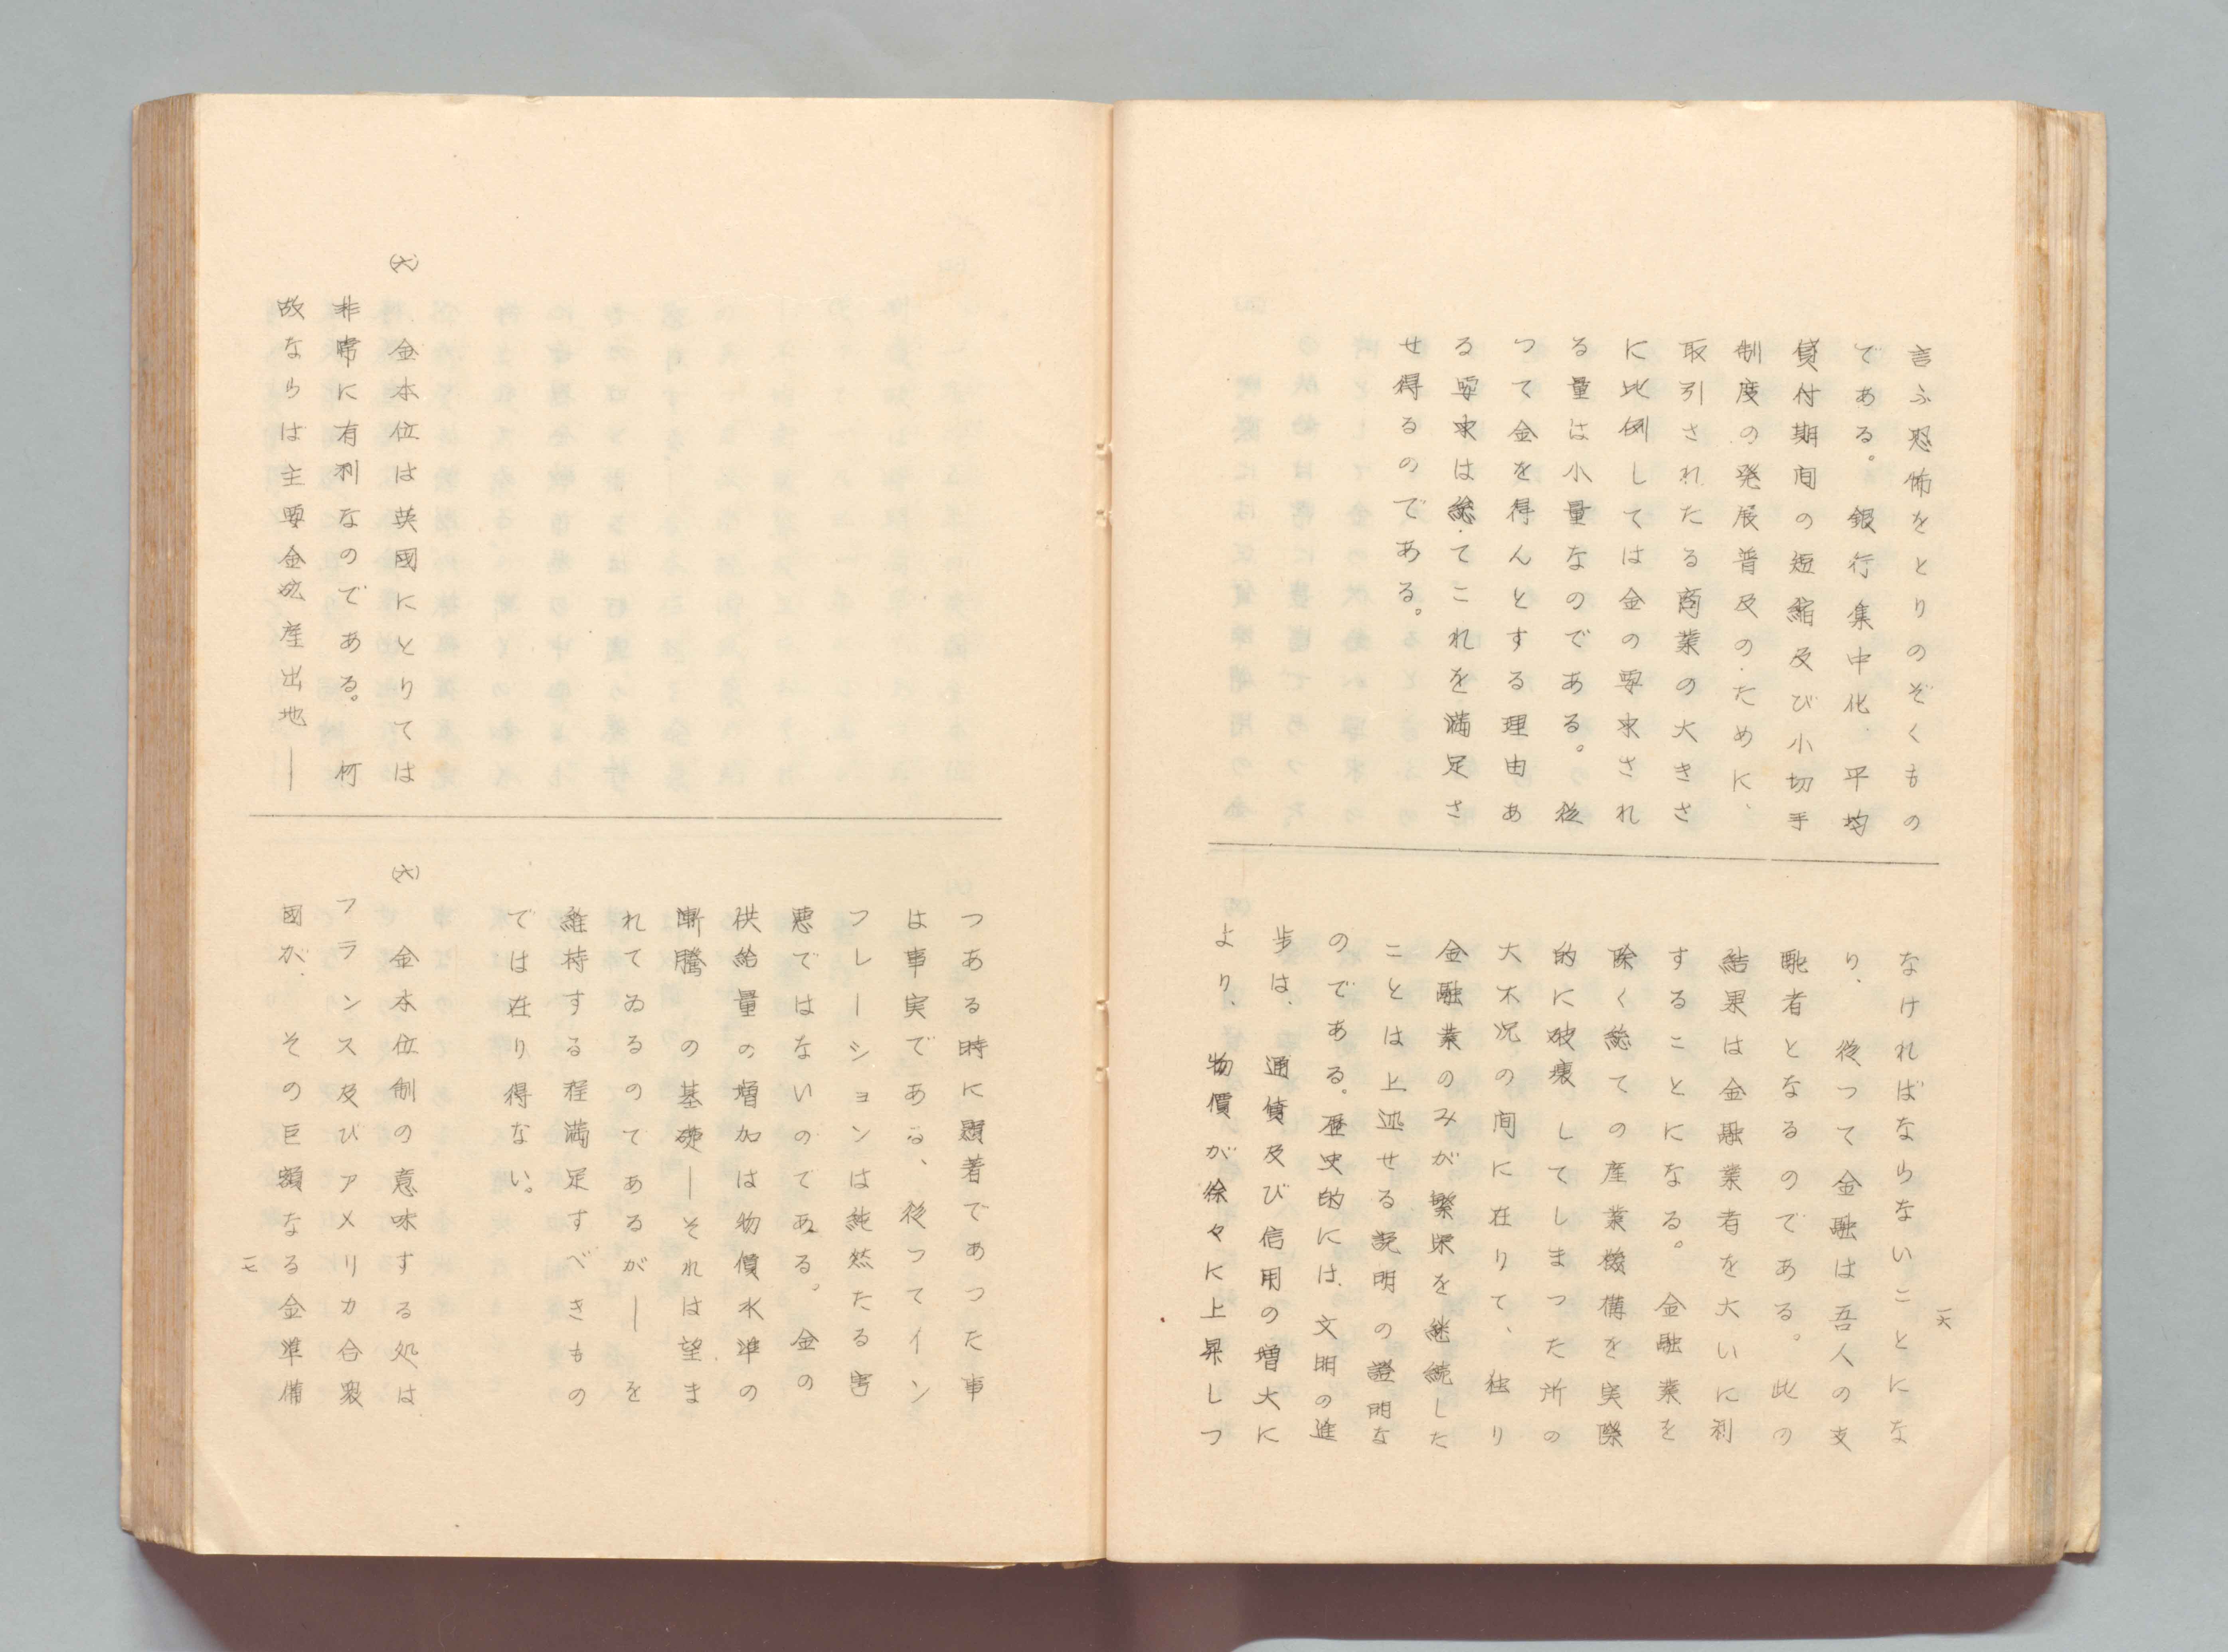 言ふ恐怖をとりのぞくもの
である。銀行集中化、平均
貸付期間の短縮及び小切手
制度の発展普及のために、
取引されたる商業の大きさ
に比例しては金の要求され
る量は小量なのである。従
つて金を得んとする理由あ
る要求は総てこれを満足さ
せ得るのである。
なければならないことにな
り、従つて金融は吾人の支
配者となるのである。此の
結果は金融業者を大いに利
することになる。金融業を
除く総ての産業機構を実際
的に破壊してしまつた所の
大不況の間に在りて、独り
金融業のみが繁栄を継続した
ことは上述せる説明の證明な
のである。歴史的には、文明の進
歩は、通貨及び信用の増大に
より、物價が徐々に上昇しつ
一六
㈥ 金本位は英國にとりては
非常に有利なのである。何
故ならは主要金鉱産出地―
つある時に顕著であつた事
は事実である、従つてイン
フレーションは純然たる害
悪ではないのてある。金の
供給量の増加は物價水準の
漸騰の基礎―それは望ま
れてゐるのてあるが―を
維持する程満足すべきもの
では在り得ない。
㈥ 金本位制の意味する処は
フランス及びアメリカ合衆
國が、その巨額なる金準備
一七